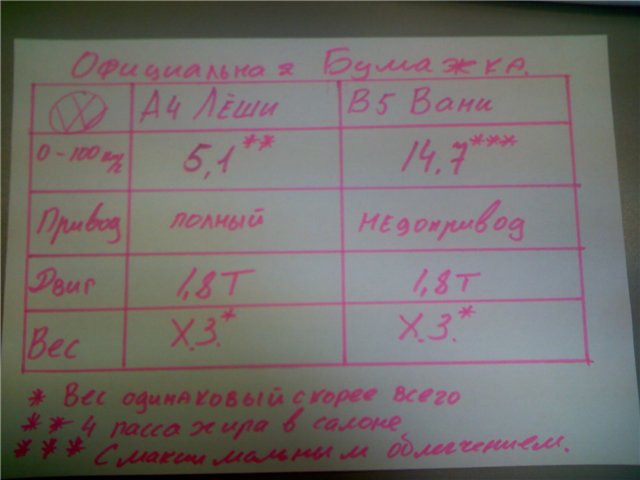 Официальная Бумажка.
А4 Лёши В5 Вани
0-100 км/ч 5,1** 14,7***
Привод полный недопривод
Двиг 1,8Т 1,8Т
Вес Х.З.* Х.З.*
* Вес одинаковый скорее всего
** 4 пассажира в салоне
*** С максимальным облегчением.